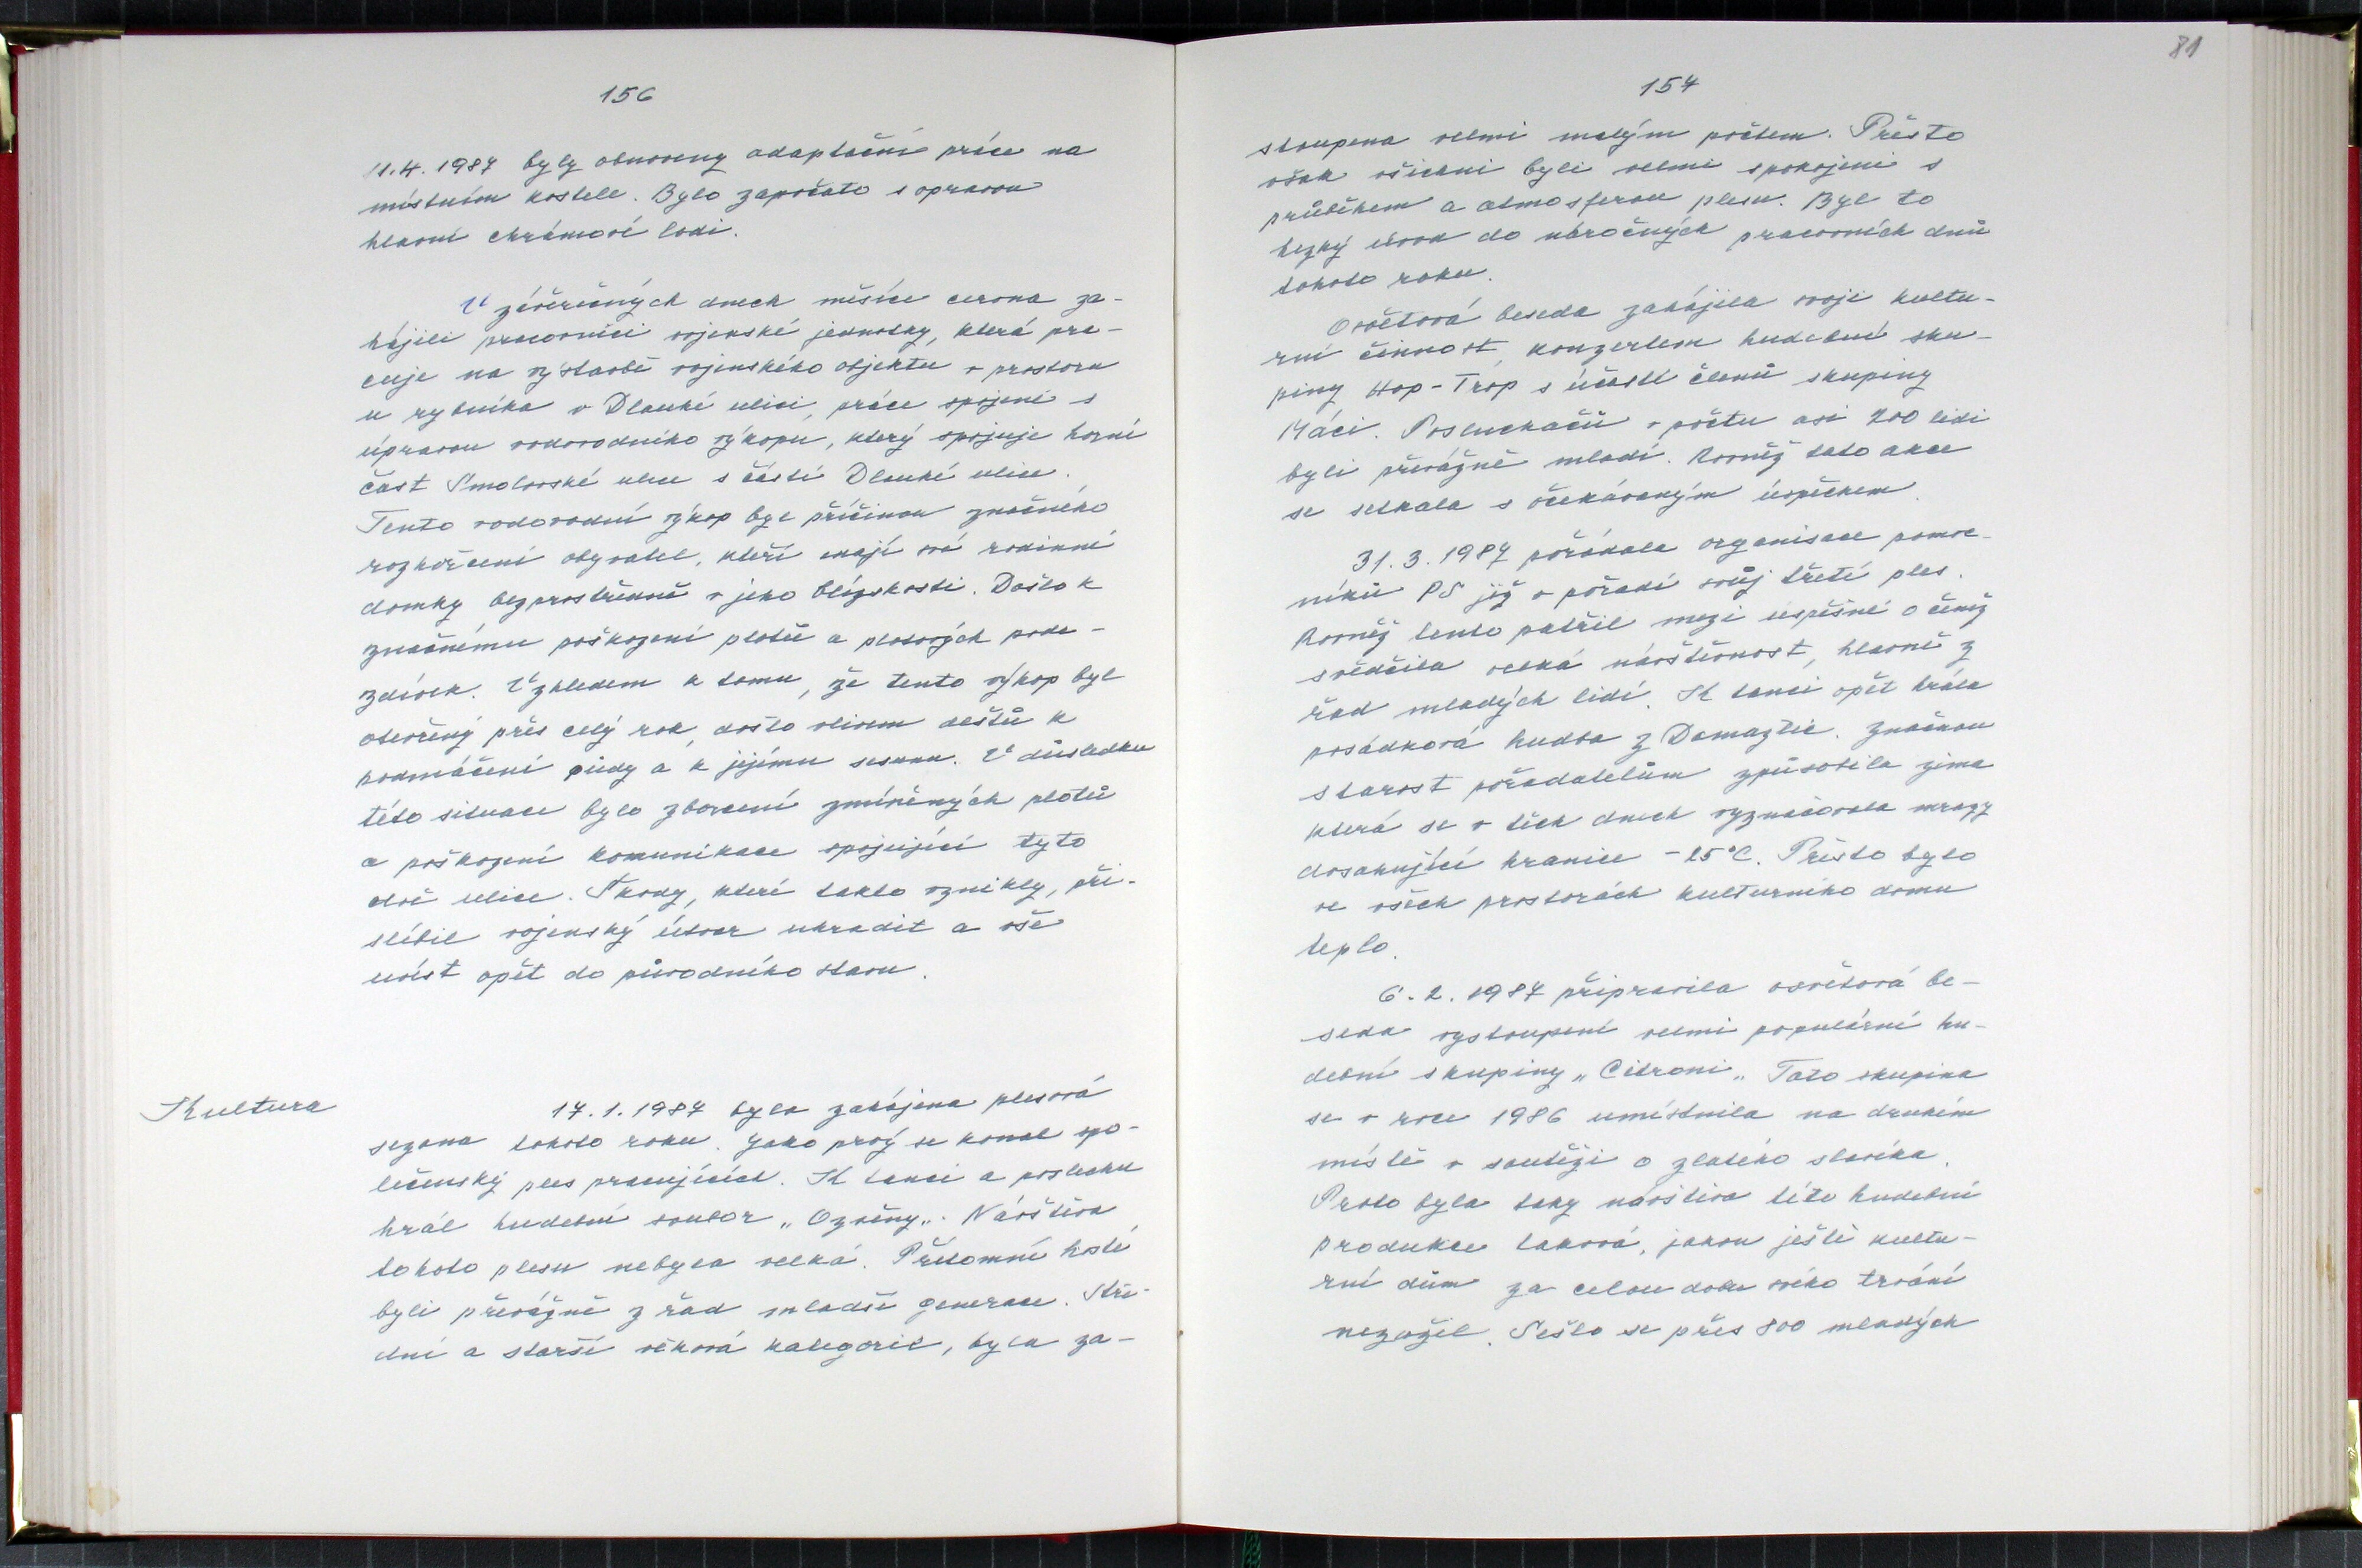 156
11.4. 1987 byly obnoveny adaptační práce na
místním kostele. Bylo započato s opravou
hlavní chrámové lodi.
V závěrečných dnech měsíce června za-
hájili pracovníci vojenské jednotky, která pra-
cuje na výstavbě vojenského objektu v prostoru
u rybníka v Dlouhé ulici, práce spojené s
úpravou vodovodního výkopu, který spojuje horní
část Smolovské ulice s částí Dlouhé ulice.
Tento vodovodní výkop byl příčinou značného
rozhořčení obyvatel, kteří mají své rodinné
domky bezprostředně v jeho blízkosti. Došlo k
značnému poškození plotů a plotových pode-
zdívek. Vzhledem k tomu, že tento výkop byl
otevřený přes celý rok, došlo vlivem dešťů k
podmáčení půdy a k jejímu sesunu. V důsledku
této situace bylo zborcení zmíněných plotů
a poškození komunikace spojující tyto
dvě ulice. Škody, které takto vznikly, při-
slíbil vojenský útvar uhradit a vše
uvést opět do původního stavu.
Kultura
17.1.1987 byla zahájena plesová
sezona tohoto roku. Jako prvý se konal spo-
lečenský ples pracujících. K tanci a poslechu
hrál hudební soubor „Ozvěny„. Návštěva
tohoto plesu nebyla velká. Přítomní hosté
byli převážně z řad mladší generace. Stře-
dní a starší věková kategorie, byla za-
81
157
stoupena velmi malým počtem. Přesto
však všichni byli velmi spokojeni s
průběhem a atmosferou plesu. Byl to
hezký úvod do náročných pracovních dnů
tohoto roku.
Osvětová beseda zahájila svoji kultu-
rní činnost, konzertem hudební sku-
piny Hop-Trop s účastí členů skupiny
Máci. Posluchačů v počtu asi 200 lidí
byli převážně mladí. Rovněž tato akce
se setkala s očekávaným úspěchem.
31.3.1987 pořádala organisace pomoc-
níků PS již v pořadí svůj třetí ples.
Rovněž tento patřil mezi úspěšné o čemž
svědčila velká návštěvnost, hlavně z
řad mladých lidí. K tanci opět hrála
posádková hudba z Domažlic. Značnou
starost pořadatelům způsobila zima
která se v těch dnech vyznačovala mrazy
dosahující hranice -25°C. Přesto bylo
ve všech prostorách kulturního domu
teplo.
6.2.1987 připravila osvětová be-
seda vystoupení velmi populární hu-
dební skupiny „Citroni„ Tato skupina
se v roce 1986 umístnila na druhém
místě v soutěži o zlatého slavíka.
Proto byla taky návštěva této hudební
produkce taková, jakou ještě kultu-
rní dům za celou dobu svého trvání
nezažil. Sešlo se přes 800 mladých